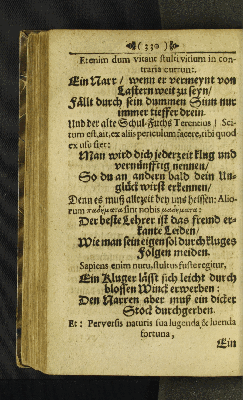 (330)
Etenim dum vitant stulti vitium in con-
traria currunt.
Ein Narr / wenn er vermeynt von
Lastern weit zu seyn /
Fällt durch sein dummen Sinn nur
immer tieffer drein.
Und der alte Schul-Fuchs Terentius / Sci-
tum est, ait, ex aliis periculum facere, tibi quod
ex usu siet:
Man wird dich jederzeit klug und
vernünfftig nennen /
So du an andern bald dein Un-
glück wirst erkennen /
Denn es muß allzeit bey uns heissen: Alio-
rum παθήματα sint nobis μαθήματα:
Der beste Lehrer ist das fremd er-
kante Leiden /
Wie man sein eigen sol durch kluges
Folgen meiden.
Sapiens enim nutu, stultus fuste regitur,
Ein Kluger läßt sich leicht durch
blossen Winck erwerben:
Den Narren aber muß ein dicker
Stock durchgerben.
Et: Perversis naturis sua lugenda & luenda
fortuna,
Ein